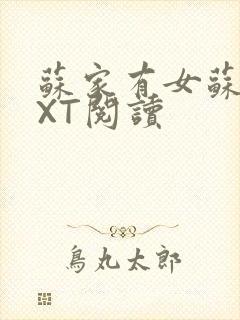 蘇家有女蘇
XT閱讀
鳥丸太郎